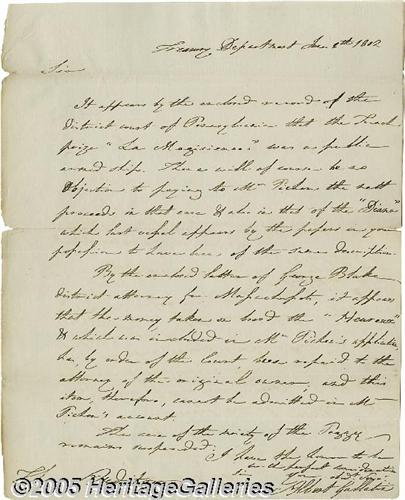 Treasury Department Jan. 8th 1802
Sir
It appears by the enclosed record of the
district court of Pennsylvania that the French
prize "La Magicienne" was a public
armed ship. There will of course be no
objection to paying to Mr Pichon the nett
proceeds in that case & also in that of the "Diana"
which last vessel appears by the papers in your
possession to have been of the same description.
By the enclosed letter of George Blake
district attorney for Massachusetts, it appears
that the money taken on board the "Heureux"
& which was included in Mr Pichon's application
has by order of the Court been repaid to the
attorney of the original owner, and this
item, therefore, cannot be admitted in Mr
Pichon's account.
The case of the moiety of the
remains suspended.
I have the honor to be
with perfect consideration
Sir
Albert Gallatin
The
©2005 HeritageGalleries